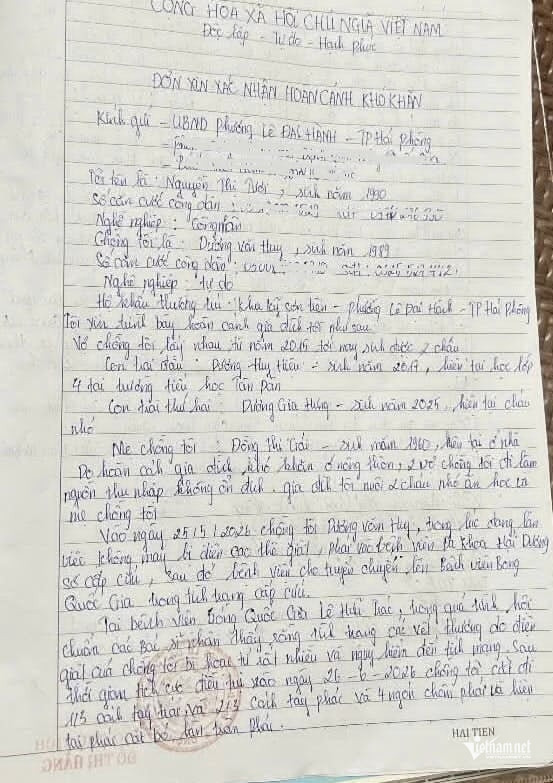 CỘNG HÒA XÃ HỘI CHỦ NGHĨA VIỆT NAM
Độc lập - Tự do - Hạnh phúc
ĐƠN XIN XÁC NHẬN HOÀN CẢNH KHÓ KHĂN
Kính gửi - UBND Phường LÊ ĐẠI HÀNH - TP Hải Phòng
Tôi tên là : Nguyễn Thị Tươi, sinh năm 1990
Số căn cước công dân :
Nghề nghiệp : Công nhân
Chồng tôi là : Dương Văn Huy, sinh năm 1989
Số căn cước công dân :
Nghề nghiệp : tự do
Hộ khẩu thường trú : Khu Kỹ Sơn tiên - phường Lê Đại Hành - TP Hải Phòng
Tôi xin trình bày hoàn cảnh gia đình tôi như sau
Vợ chồng tôi lấy nhau từ năm 2015 tới nay sinh được 2 cháu
Con trai đầu : Dương Huy Hiếu - sinh năm 2017, hiện tại học lớp
4 tại trường tiểu học Tân Dân
Con trai thứ hai : Dương Gia Hưng - sinh năm 2025, hiện tại cháu
nhỏ
Mẹ chồng tôi : Đồng Thị - sinh năm 1960, hiện tại ở nhà
Do hoàn cảnh gia đình khó khăn ở nông thôn, 2 vợ chồng tôi đi làm
nguồn thu nhập không ổn định. gia đình tôi nuôi 2 cháu nhỏ ăn học và
mẹ chồng tôi
Vào ngày 25/5/2026 chồng tôi Dương Văn Huy, trong lúc đang làm
việc không may bị điện cao thế giật, phải vào bệnh viện Đa Khoa Hải Dương
sơ cấp cứu, sau đó bệnh viện cho chuyển lên Bệnh viện Bỏng
Quốc Gia trong tình trạng cấp cứu.
Tại bệnh viện Bỏng Quốc Gia Lê Hữu Trác, trong quá trình hội
chuẩn các Bác sĩ nhận thấy tình trạng các vết thương do điện
giật quá chồng tôi bị hoại tử rất nhiều và nguy hiểm đến tính mạng. sau
thời gian tích cực điều trị vào ngày 26-6-2026 chồng tôi cắt đi
1/3 cánh tay trái và 2/3 cánh tay phải và 4 ngón chân phải và hiện
tại phải cắt bỏ chân phải.
HẢI TIẾN
vietnamnet
ĐỖ THỊ HẰNG